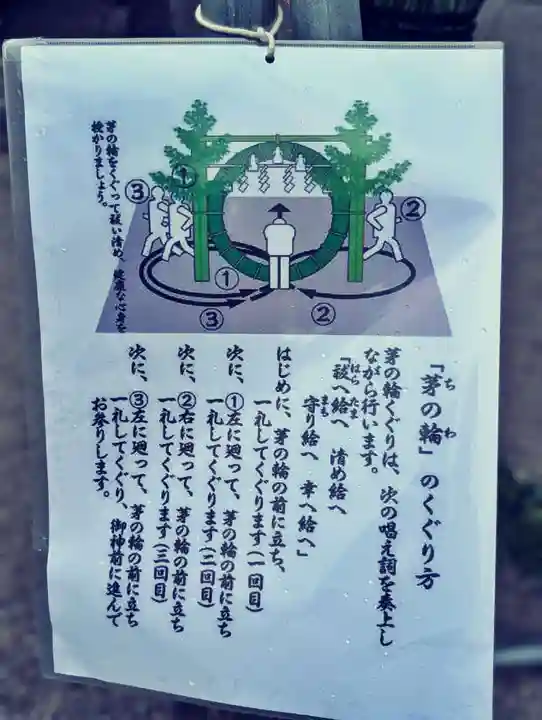 「茅の輪」のくぐり方
ちわ
茅の輪くぐりは、次の唱え詞を奏上し
ながら行います。
「祓へ給へ 清め給へ
はらたま
守り給へ 幸へ給へ」
まも
はじめに、茅の輪の前に立ち、
一礼してくぐります(一回目)
次に、①左に廻って、茅の輪の前に立ち
一礼してくぐります(二回目)
次に、②右に廻って、茅の輪の前に立ち
一礼してくぐります(三回目)
次に、③左に廻って、茅の輪の前に立ち
一礼してくぐり、御神前に進んで
お参りします。
茅の輪をくぐって祓い清め、健康な心身を
授かりましょう。
③
①
②
①
③
②